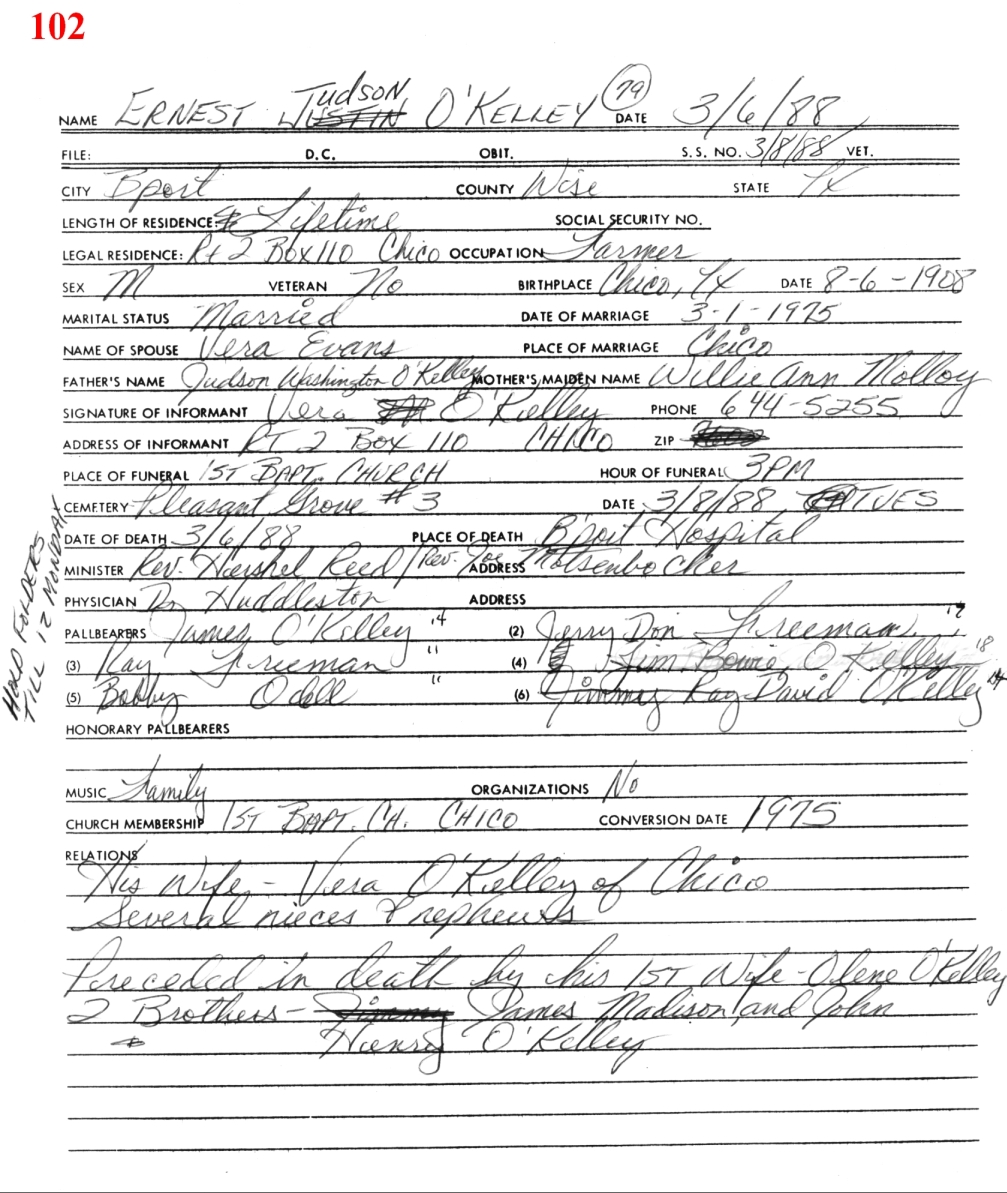 102
NAME ERNEST Judson O'KELLEY (79) DATE 3/6/88
FILE: D.C. OBIT. S.S. NO. 3/8/88 VET.
CITY Bport COUNTY Wise STATE Tx
LENGTH OF RESIDENCE: Lifetime SOCIAL SECURITY NO.
LEGAL RESIDENCE: Rt 2 Box 110 Chico OCCUPATION Farmer
SEX M VETERAN No BIRTHPLACE Chico, Tx DATE 8-6-1908
MARITAL STATUS Married DATE OF MARRIAGE 3-1-1975
NAME OF SPOUSE Vera Evans PLACE OF MARRIAGE Chico
FATHER'S NAME Judson Washington O'Kelley MOTHER'S MAIDEN NAME Willie Ann Molloy
SIGNATURE OF INFORMANT Vera O'Kelley PHONE 644-5255
ADDRESS OF INFORMANT RT 2 Box 110 CHICO ZIP
PLACE OF FUNERAL 1ST BAPT. CHURCH HOUR OF FUNERAL 3PM
CEMETERY Pleasant Grove #3 DATE 3/8/88 TUES
DATE OF DEATH 3/6/88 PLACE OF DEATH B'port Hospital
MINISTER Rev. Hershel Reed / Rev. Joe ADDRESS Motsenbocker
PHYSICIAN Dr Huddleston ADDRESS
HOLD FOLDERS
TILL 12 MONDAY
PALLBEARERS James O'Kelley 14 (2) Jerry Don Freeman 17
(3) Ray Freeman 11 (4) Jim Bowie O'Kelley 18
(5) Bobby Odell 11 (6) Jimmy Ray David O'Kelley
HONORARY PALLBEARERS
MUSIC Family ORGANIZATIONS No
CHURCH MEMBERSHIP 1ST BAPT. CH. CHICO CONVERSION DATE 1975
RELATIONS
His Wife - Vera O'Kelley of Chico
Several nieces & nephews
Preceded in death by his 1ST Wife - Olene O'Kelley
2 Brothers - Jimmy James Madison and John
Henry O'Kelley